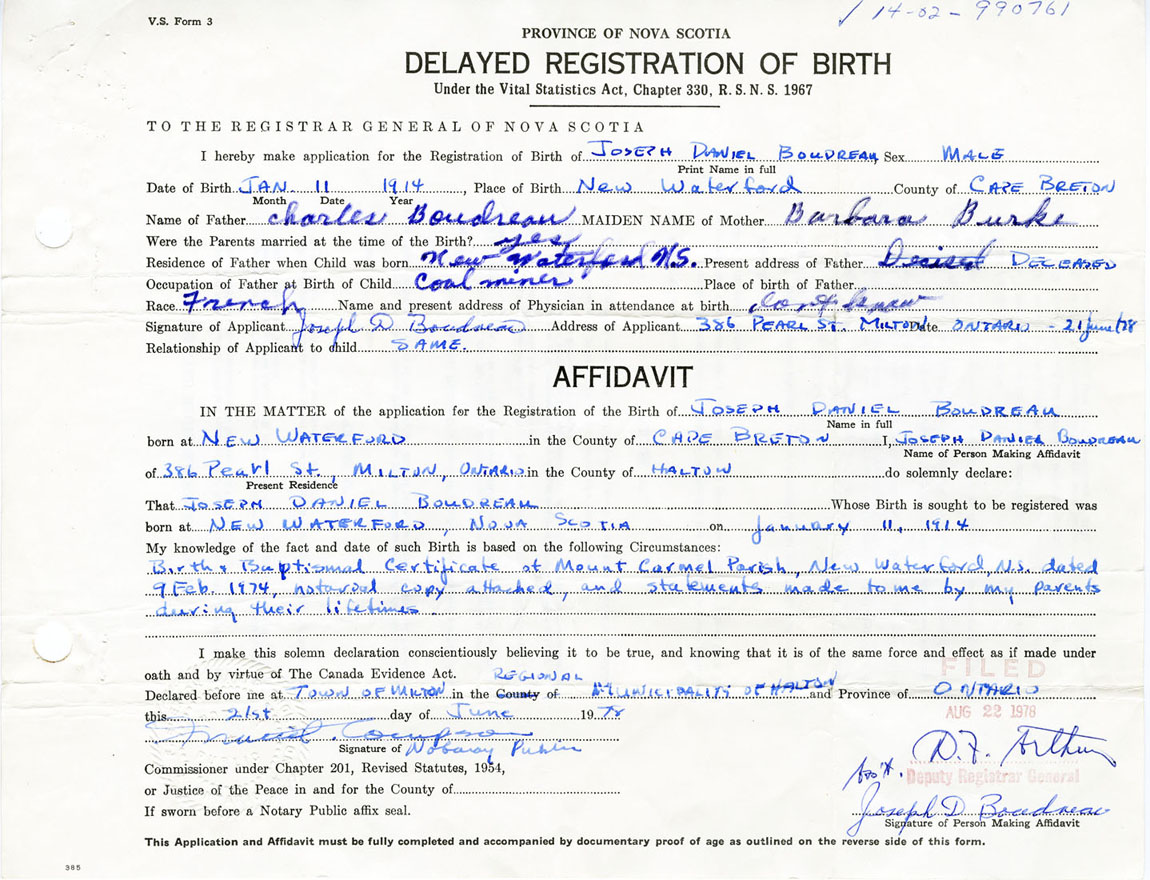 V.S. Form 3
14-02-990761
PROVINCE OF NOVA SCOTIA
DELAYED REGISTRATION OF BIRTH
Under the Vital Statistics Act, Chapter 330, R. S. N. S. 1967
TO THE REGISTRAR GENERAL OF NOVA SCOTIA
I hereby make application for the Registration of Birth of JOSEPH DANIEL BOUDREAU Sex MALE
Print Name in full
Date of Birth JAN 11 1914, Place of Birth New Waterford County of CAPE BRETON
Month Date Year
Name of Father Charles Boudreau MAIDEN NAME of Mother Barbara Burke
Were the Parents married at the time of the Birth? yes
Residence of Father when Child was born New Waterford N.S. Present address of Father DECEASED
Occupation of Father at Birth of Child Coal miner Place of birth of Father
Race French Name and present address of Physician in attendance at birth
Signature of Applicant Joseph D Boudreau Address of Applicant 386 PEARL ST. MILTON Date ONTARIO - 21 June/78
Relationship of Applicant to child SAME.
AFFIDAVIT
IN THE MATTER of the application for the Registration of the Birth of JOSEPH DANIEL BOUDREAU
Name in full
born at NEW WATERFORD in the County of CAPE BRETON I, JOSEPH DANIEL BOUDREAU
Name of Person Making Affidavit
of 386 Pearl St., MILTON, ONTARIO in the County of HALTON do solemnly declare:
Present Residence
That JOSEPH DANIEL BOUDREAU Whose Birth is sought to be registered was
born at NEW WATERFORD, NOVA SCOTIA on January 11, 1914
My knowledge of the fact and date of such Birth is based on the following Circumstances:
Birth & Baptismal Certificate of Mount Carmel Parish, New Waterford, N.S. dated
9 Feb. 1974, notarial copy attached, and statements made to me by my parents
during their lifetimes
I make this solemn declaration conscientiously believing it to be true, and knowing that it is of the same force and effect as if made under
oath and by virtue of The Canada Evidence Act.
REGIONAL
FILED
Declared before me at TOWN OF MILTON in the County of MUNICIPALITY OF HALTON and Province of ONTARIO
this 21st day of June 1978
AUG 22 1978
Signature of Notary Public
D.F. Arthur
Commissioner under Chapter 201, Revised Statutes, 1954,
Deputy Registrar General
or Justice of the Peace in and for the County of
Joseph D Boudreau
If sworn before a Notary Public affix seal.
Signature of Person Making Affidavit
This Application and Affidavit must be fully completed and accompanied by documentary proof of age as outlined on the reverse side of this form.
385